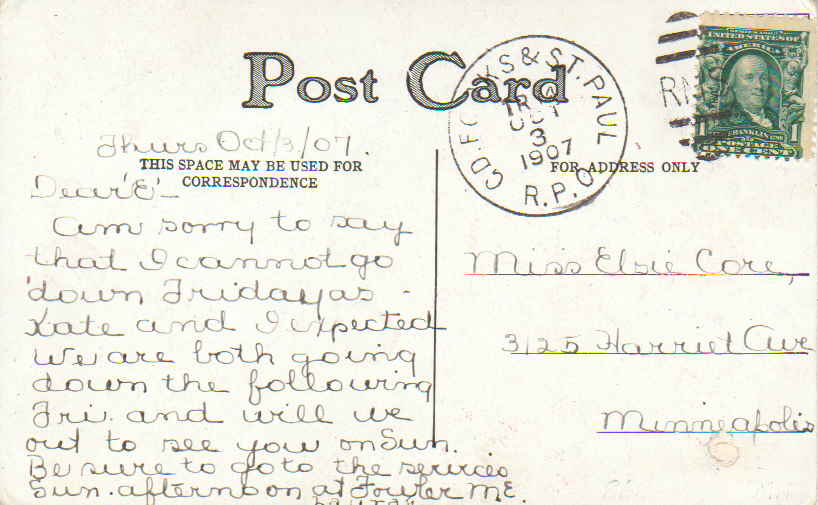 Post Card
GD. FORKS & ST. PAUL
TR
OCT
3
1907
R.P.O.
RM
UNITED STATES OF
AMERICA
FRANKLIN
POSTAGE
1 ONE CENT
Thurs Oct/3/07.
THIS SPACE MAY BE USED FOR
CORRESPONDENCE
FOR ADDRESS ONLY
Dear 'E' -
Am sorry to say
that I cannot go
down Friday as -
Kate and I expected
We are both going
down the following
Fri. and will we
out to see you on Sun.
Be sure to go to the services
Sun. afternoon at Fowler M.E.
Miss Elsie Core,
3125 Harriet Ave
Minneapolis